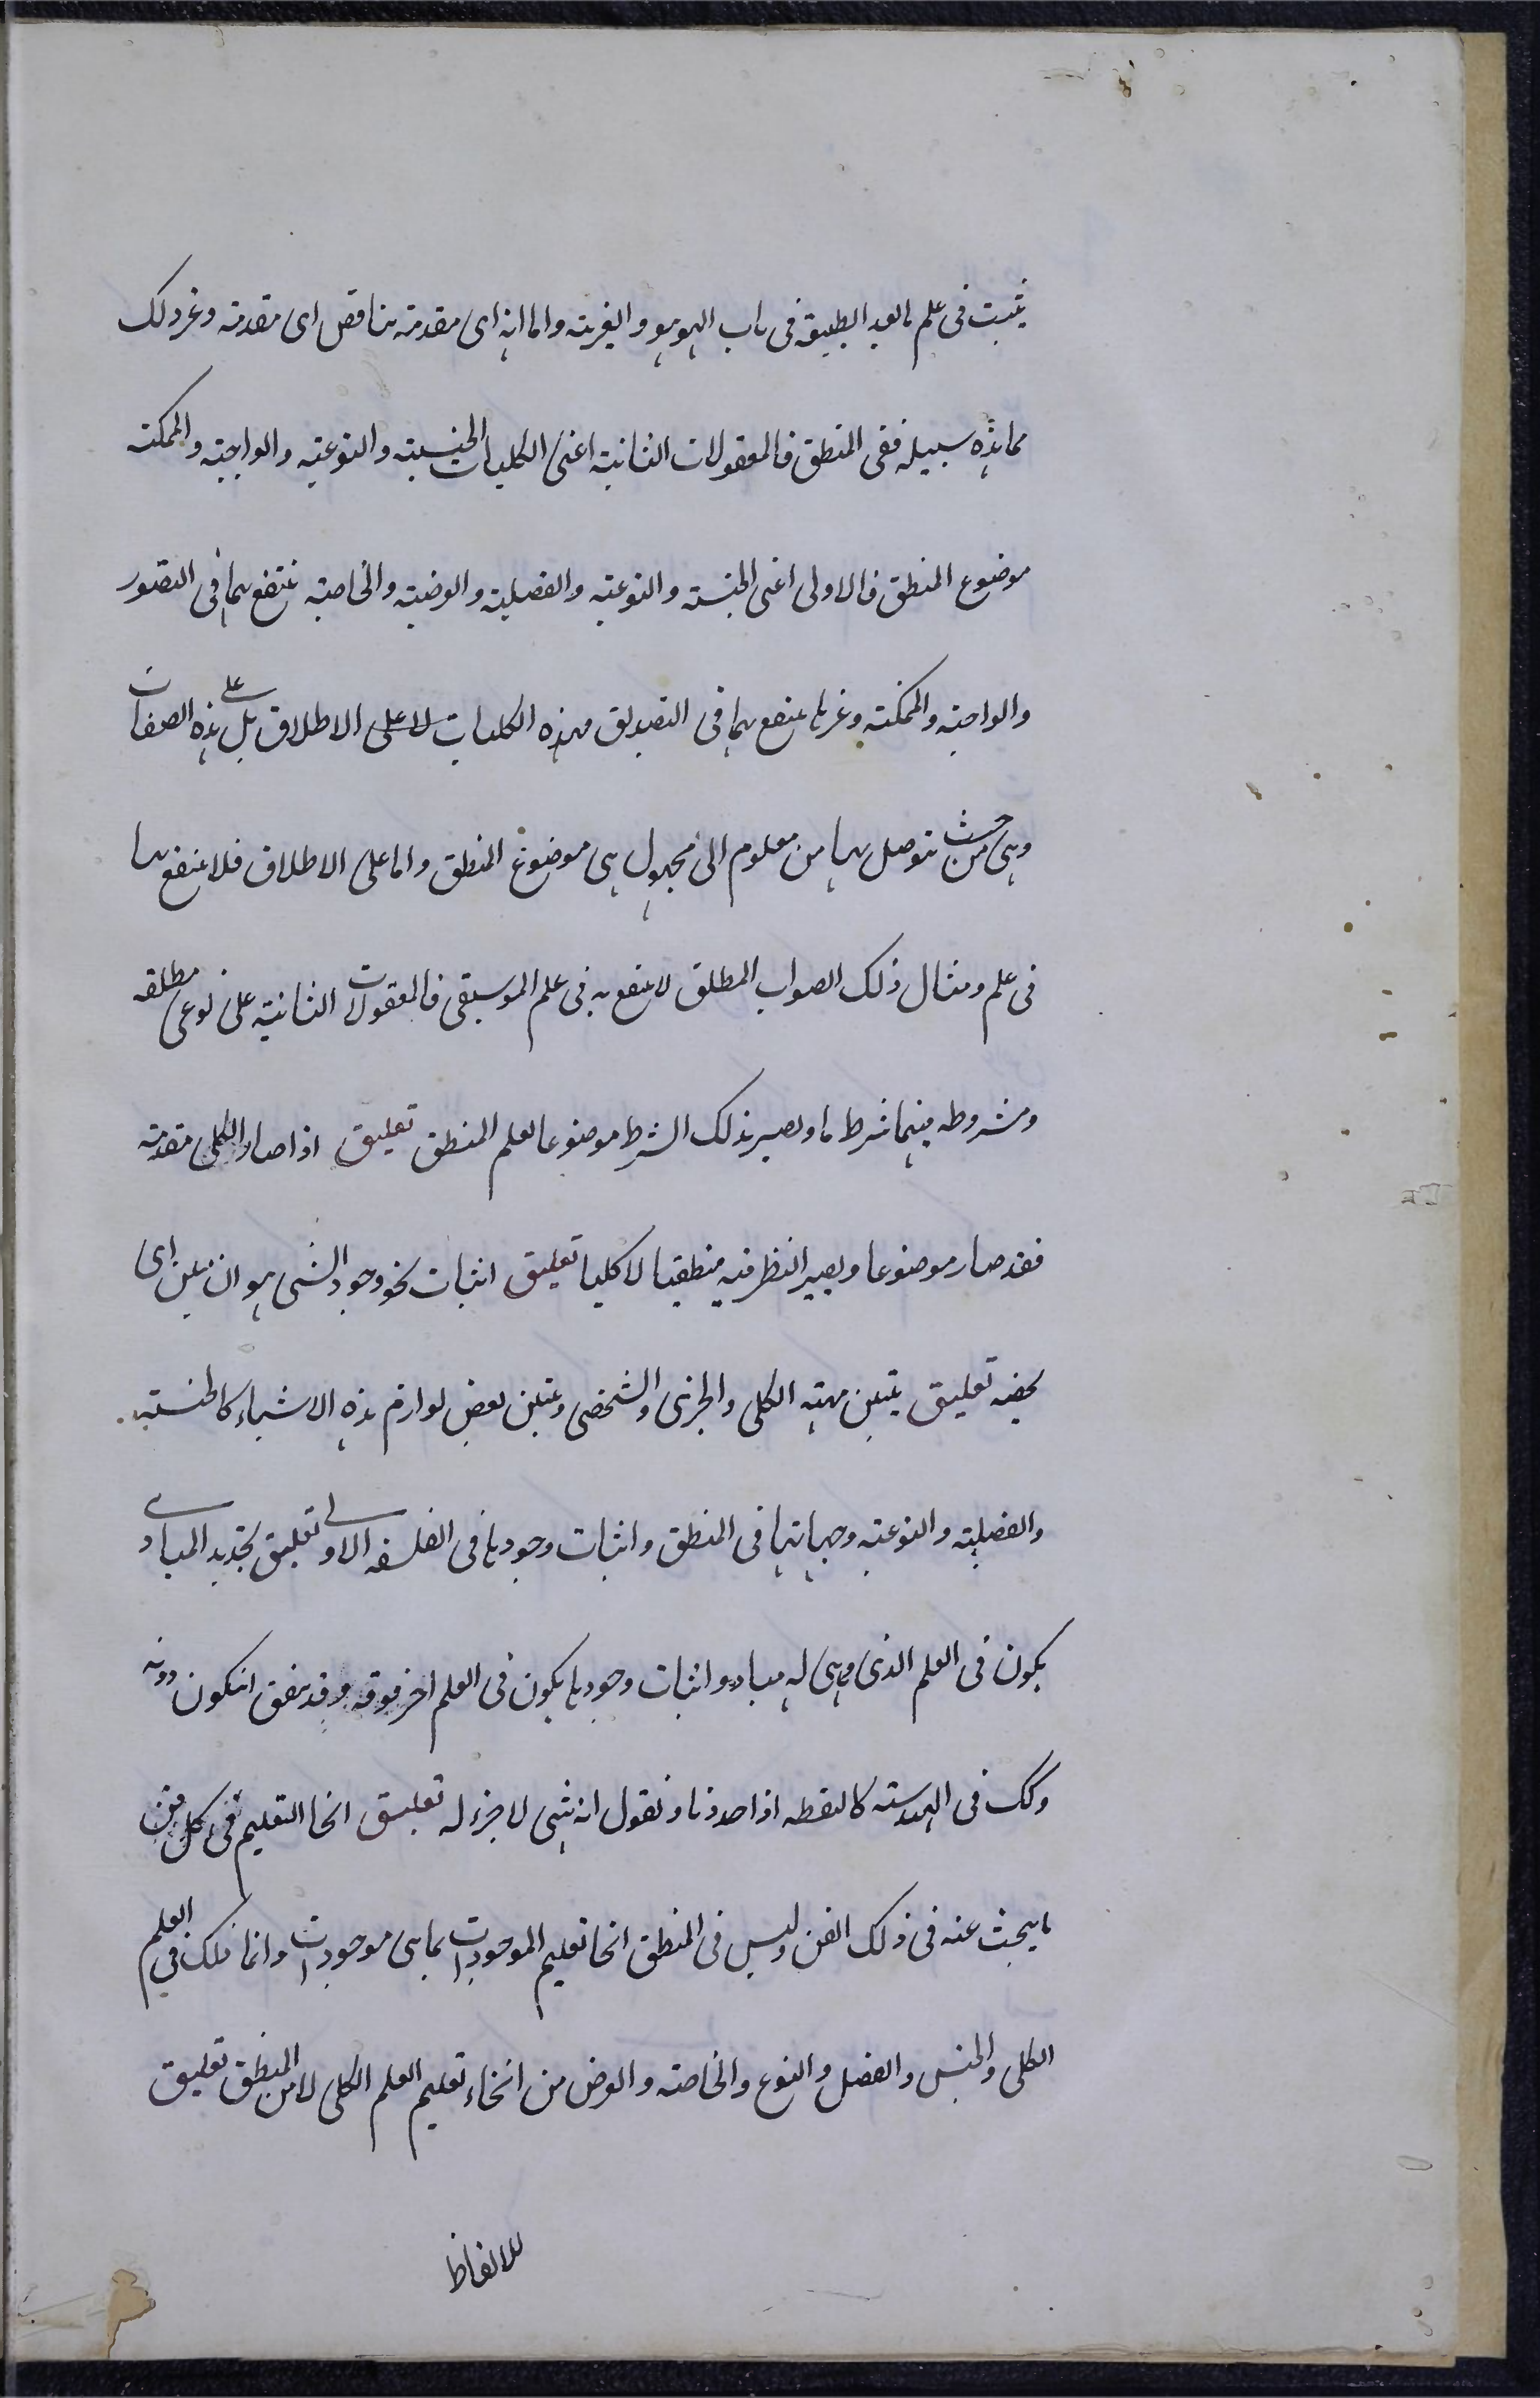 يثبت فى علم مابعد الطبيعة فى باب الهوهو والغيرية واما انه اى مقدمة تناقض اى مقدمة وغير ذلك
مما هذه سبيله ففى المنطق فالمعقولات الثانية اعنى الكليات الجنسية والنوعية والواجبة والممكنة
موضوع المنطق فالاولى اعنى الجنسية والنوعية والفصلية والعرضية والخاصية ينتفع بها فى التصور
والواجبة والممكنة وغيرها ينتفع بها فى التصديق فهذه الكليات لا على الاطلاق بل على هذه الصفات
وهى من حيث يتوصل بها من معلوم الى مجهول هى موضوع المنطق واما على الاطلاق فلا ينتفع بها
فى علم ومثال ذلك الصواب المطلق لا ينتفع به فى علم الموسيقى فالمعقولات الثانية على نوعى مطلقه
ومشروطه فيها شرط ما ويصير بذلك الشرط موضوعا لعلم المنطق تعليق اذا صار الكلى مقدمة
فقد صار موضوعا ويصير النظر فيه منطقيا لا كليا تعليق اثبات نحو وجود الشى هو ان يبين اى
يخصه تعليق يتبين مهية الكلى والجزى والشخصى ويتبين بعض لوازم هذه الاشياء كالجنسية
والفصلية والنوعية وجهاتها فى المنطق واثبات وجودها فى الفلسفه الاولى تعليق تحديد المبادى
يكون فى العلم الذى هى له مباد واثبات وجودها يكون فى العلم اخر فوقه وقد يتفق ان يكون دونه
وكك فى الهندسة كالنقطه اذا حددناه ونقول انه شى لا جزء له تعليق انحا التعليم فى كل فن
ما يبحث عنه فى ذلك الفن وليس فى المنطق انحا تعليم الموجودات بما هى موجودات وانما ذلك فى العلم
الكلى والجنس والفصل والنوع والخاصة والعرض من انحاء تعليم العلم الكلى لا من المنطق تعليق
للالفاظ